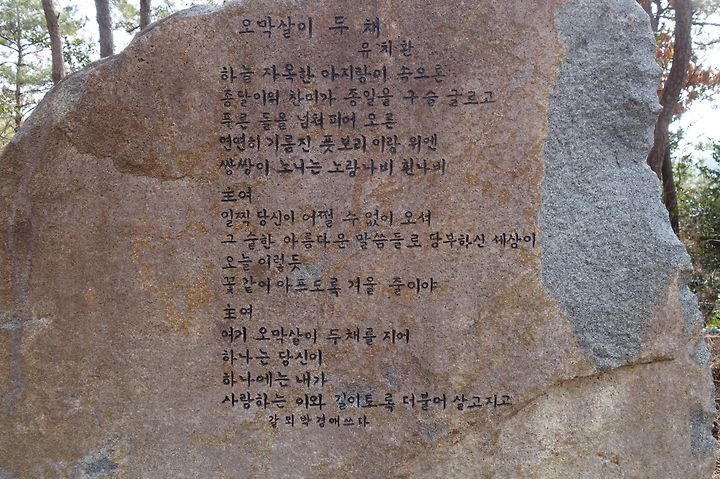 오막살이 두 채
유치환
하늘 자옥한 아지랑이 속으론
종달이의 찬미가 종일을 구슬 굴르고
푸른 들을 넘쳐 피어 오른
연연히 기름진 풋보리 이랑 위엔
쌍쌍이 노니는 노랑나비 흰나비
主여
일찍 당신이 어쩔 수 없이 오셔
그 숱한 아름다운 말씀들로 당부하신 세상이
오늘 이렇듯
꽃같이 아프도록 겨울 줄이야
主여
여기 오막살이 두 채를 지어
하나는 당신이
하나에는 내가
사랑하는 이와 길이토록 더불어 살고지고
갈뫼 박경애 쓰다